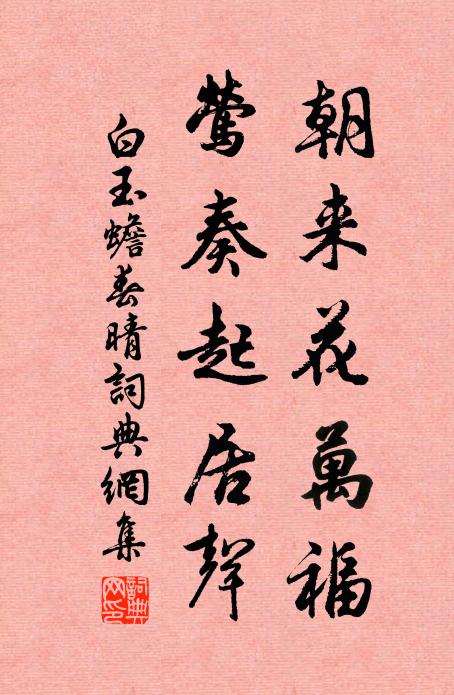 朝来花萬福
鶯奏起居聲
白玉蟾春晴詞典網集
詞典網印